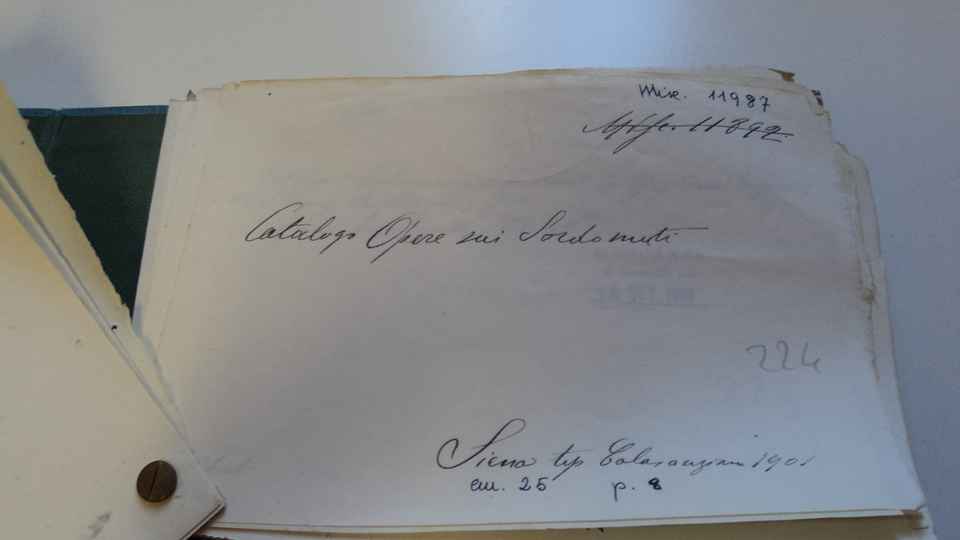 Misc. 11987
Misc. 11892
Catalogo Opere sui Sordomuti
224
Siena tip Calasanziana 1901
cm. 25 p. 8